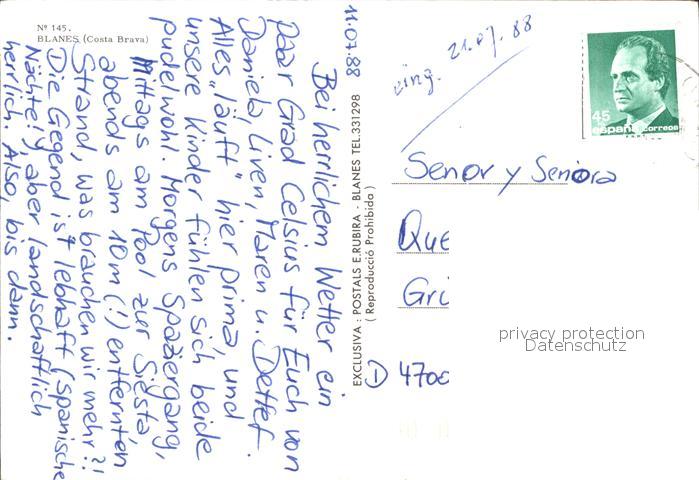 Nº 145.
BLANES (Costa Brava)
11.07.88
Bei herrlichem Wetter ein
paar Grad Celsius für Euch von
Daniela, Liven, Maren u. Detlef.
Alles „läuft" hier prima, und
unsere Kinder fühlen sich beide
pudelwohl. Morgens Spaziergang,
Mittags am Pool zur Siesta,
abends am 10m (!) entfernten
Strand, was brauchen wir mehr?!
Die Gegend ist lebhaft (spanische
Nächte!), aber landschaftlich
herrlich. Also, bis dann.
EXCLUSIVA: POSTALS E.RUBIRA - BLANES TEL.331298
( Reproducció Prohibida )
eing. 21.07.88
45
españa correos
Senor y Seniora
Que
Gri
D 4700
privacy protection
Datenschutz